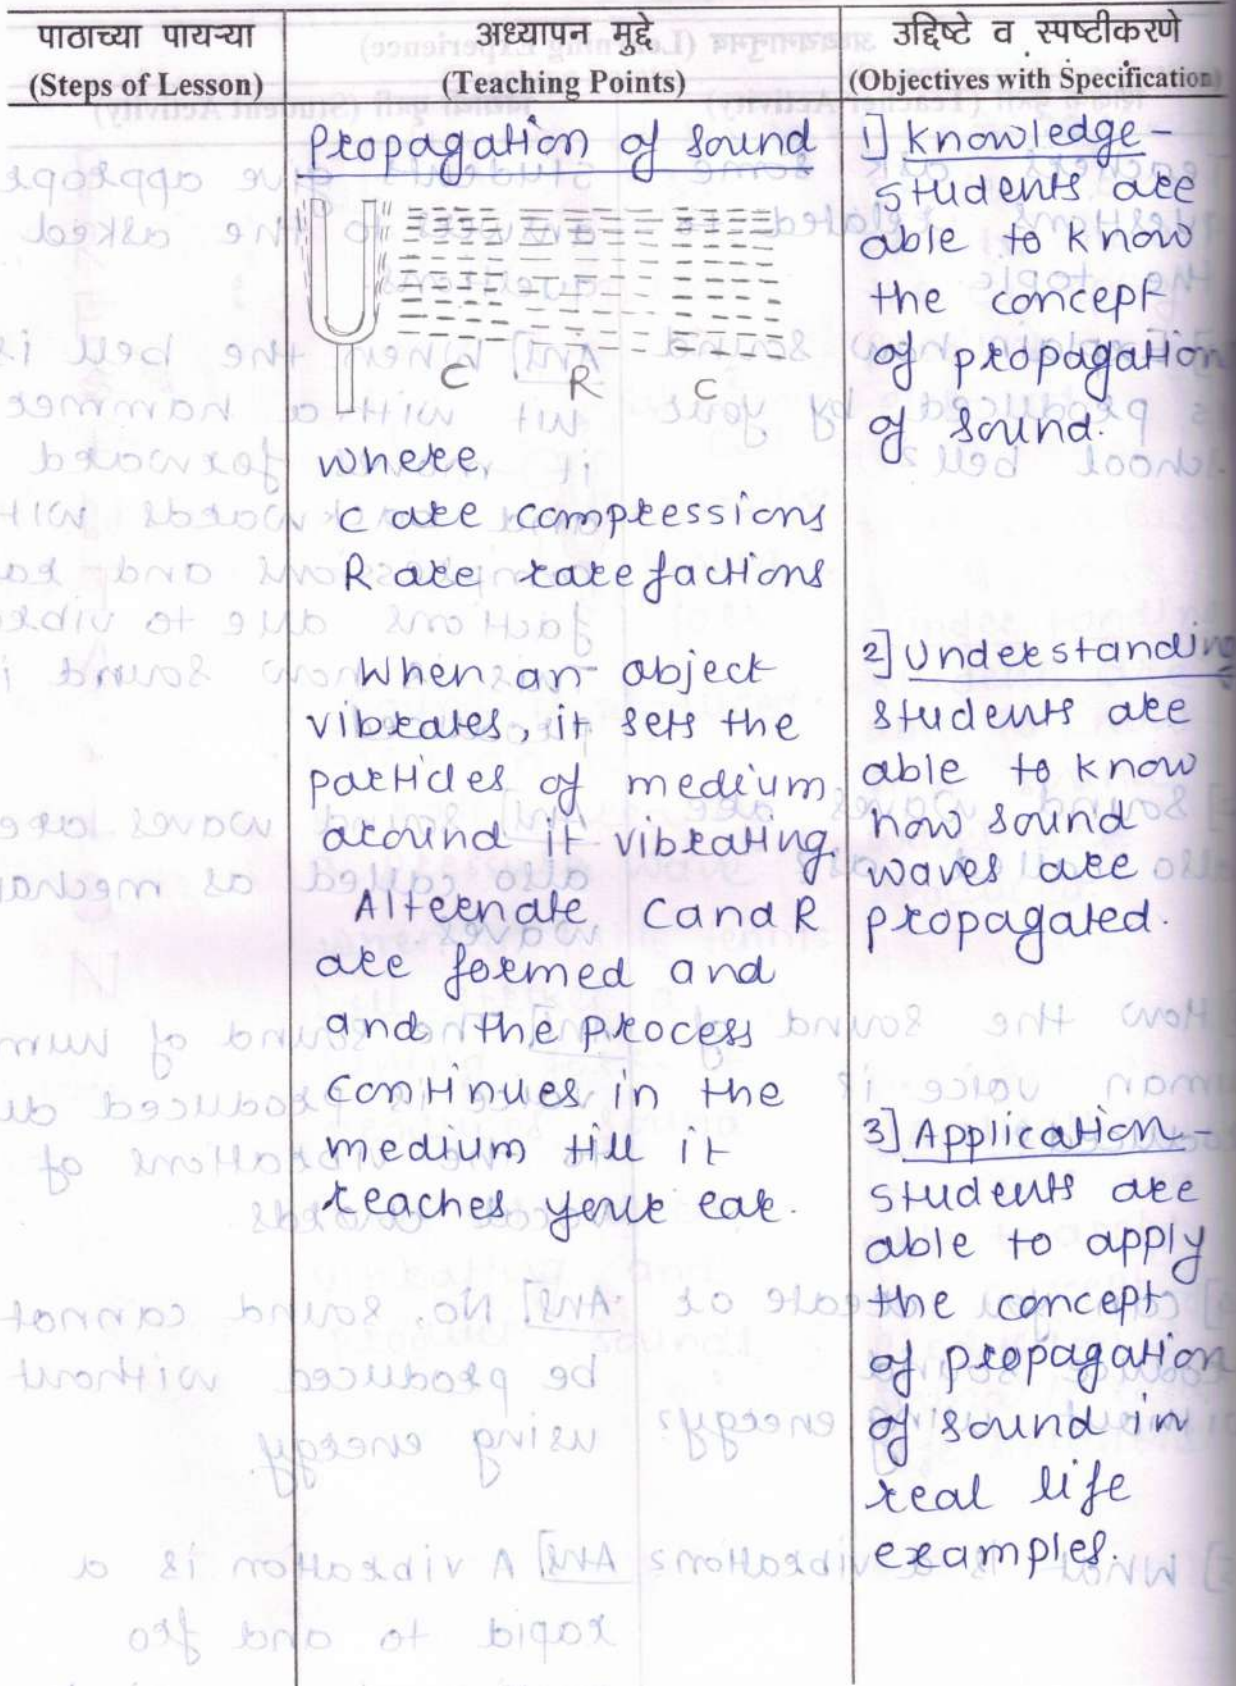 पाठाच्या पायऱ्या
(Steps of Lesson)
अध्यापन मुद्दे
(Teaching Points)
उद्दिष्टे व स्पष्टीकरणे
(Objectives with Specification)
Propagation of sound
C R C
where,
C are compressions
R are rarefactions
When an object
vibrates, it sets the
particles of medium
around it vibrating.
Alternate C and R
are formed and
and the process
continues in the
medium till it
reaches your ear.
1] Knowledge -
students are
able to know
the concept
of propagation
of sound.
2] Understanding
students are
able to know
how sound
waves are
propagated.
3] Application -
students are
able to apply
the concept
of propagation
of sound in
real life
examples.